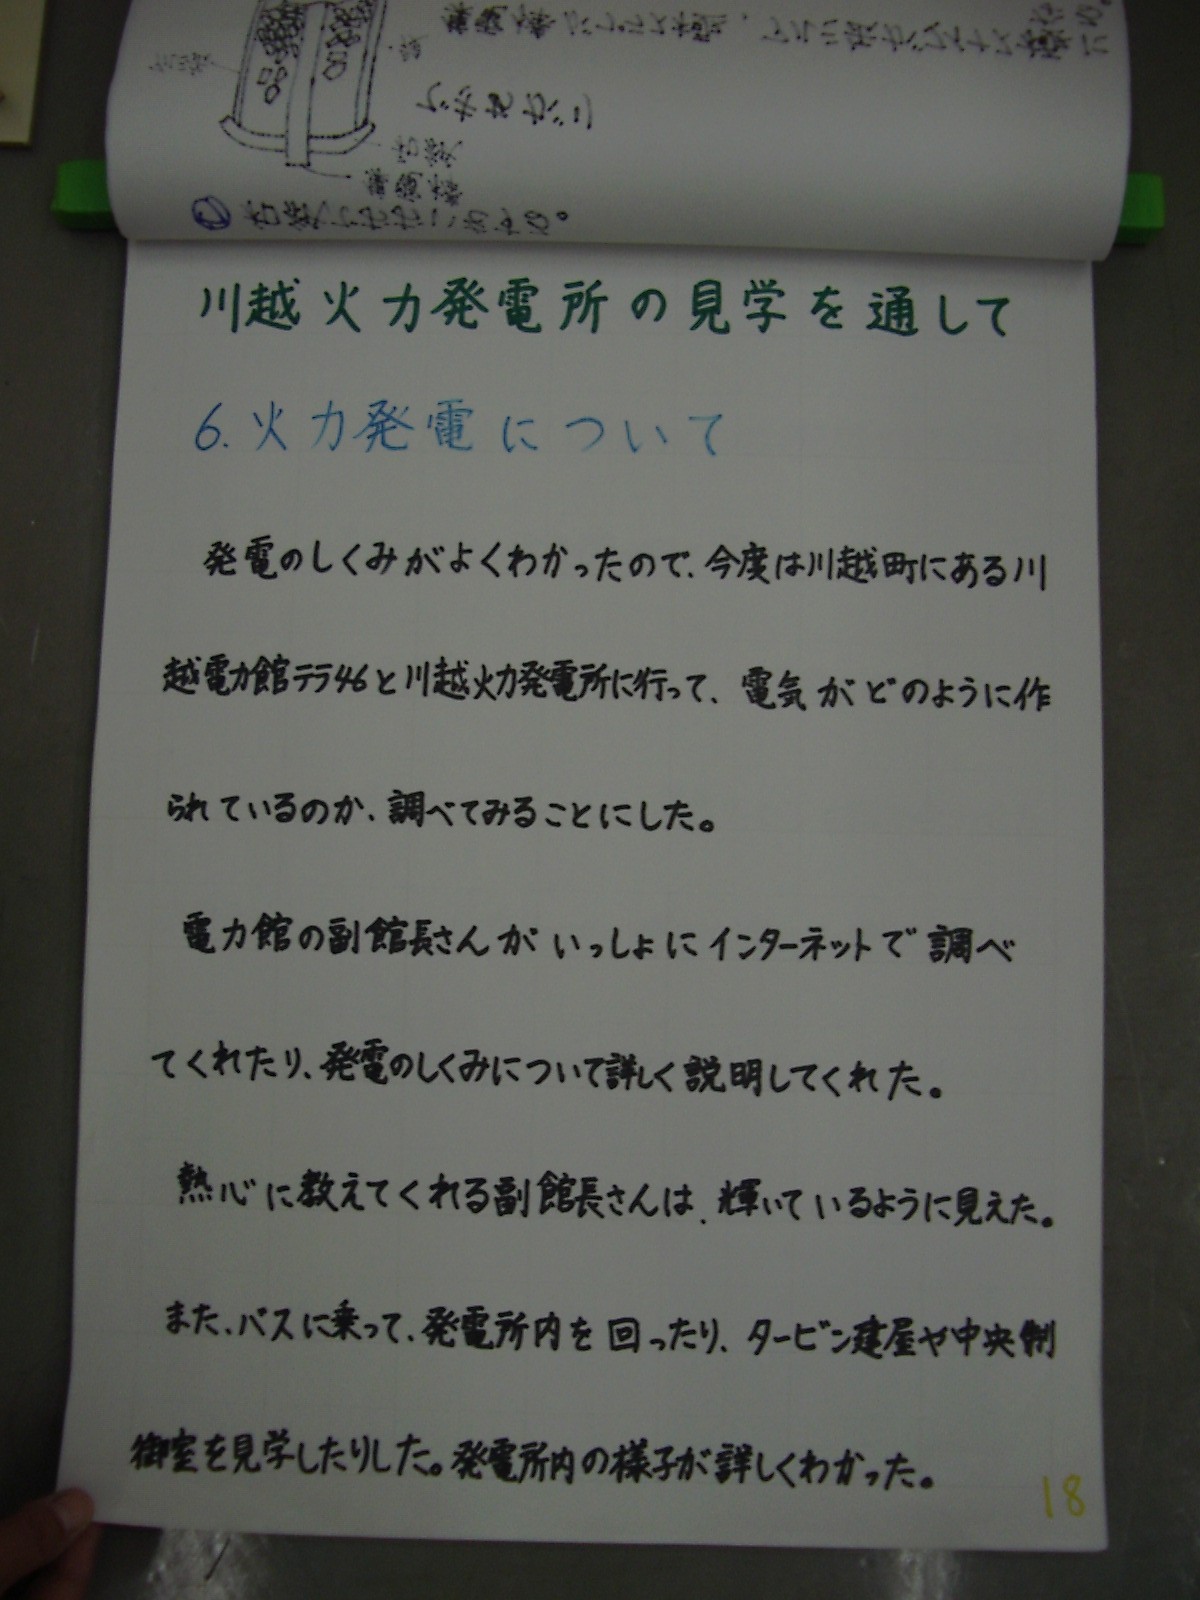 川越火力発電所の見学を通して
6.火力発電について
発電のしくみがよくわかったので、今度は川越町にある川
越電力館テラ46と川越火力発電所に行って、電気がどのように作
られているのか、調べてみることにした。
電力館の副館長さんがいっしょにインターネットで調べ
てくれたり、発電のしくみについて詳しく説明してくれた。
熱心に教えてくれる副館長さんは、輝いているように見えた。
また、バスに乗って、発電所内を回ったり、タービン建屋や中央制
御室を見学したりした。発電所内の様子が詳しくわかった。
18